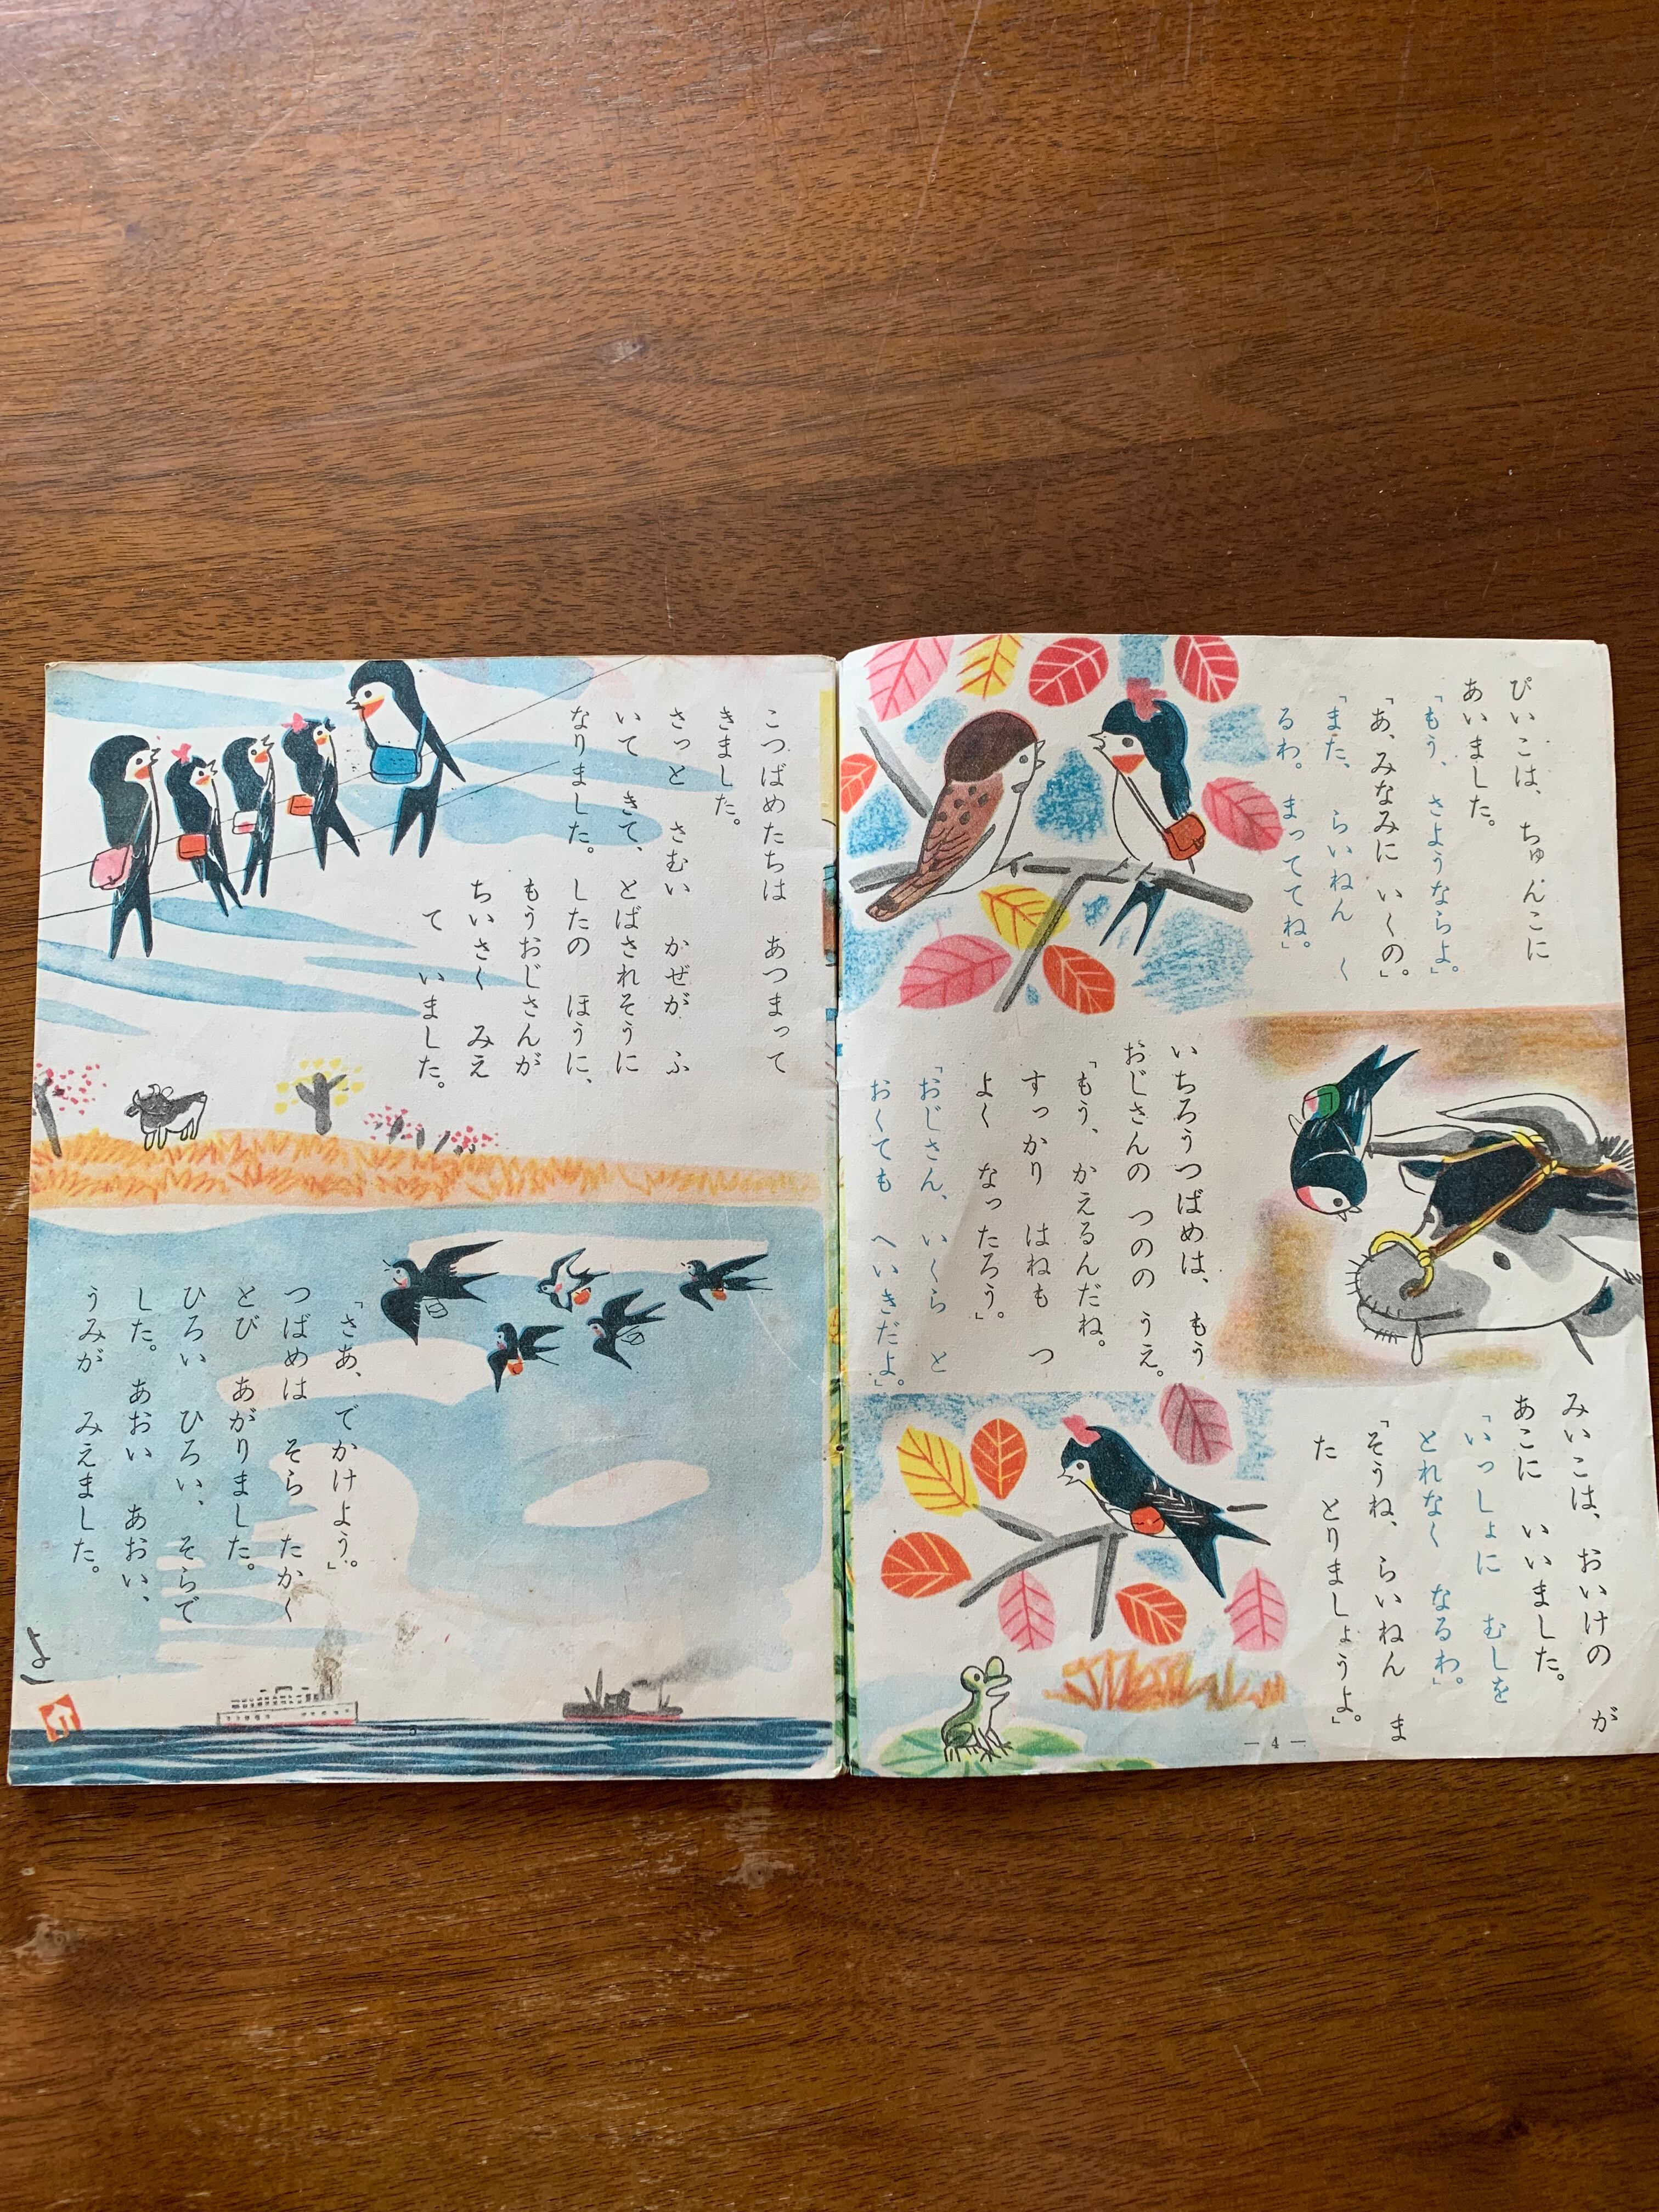 ぴいこは、ちゅんこに
あいました。
「もう、さようならよ。」
「あ、みなみに いくの。」
「また、 らいねん く
るわ。 まっててね。」
いちろうつばめは、 もう
おじさんの つのの うえ。
「もう、かえるんだね。
すっかり はねも つ
よく なったろう。」
「おじさん、 いくら と
おくても へいきだよ。」
みいこは、おいけの が
あこに いいました。
「いっしょに むしを
とれなく なるわ。」
「そうね、らいねん ま
た とりましょうよ。」
— 4 —
こつばめたちは あつまって
きました。
さっと さむい かぜが ふ
いて きて、とばされそうに
なりました。 したの ほうに、
もうおじさんが
ちいさく みえ
て いました。
「さあ、でかけよう。」
つばめは そら たかく
とび あがりました。
ひろい ひろい、そらで
した。あおい あおい、
うみが みえました。
5